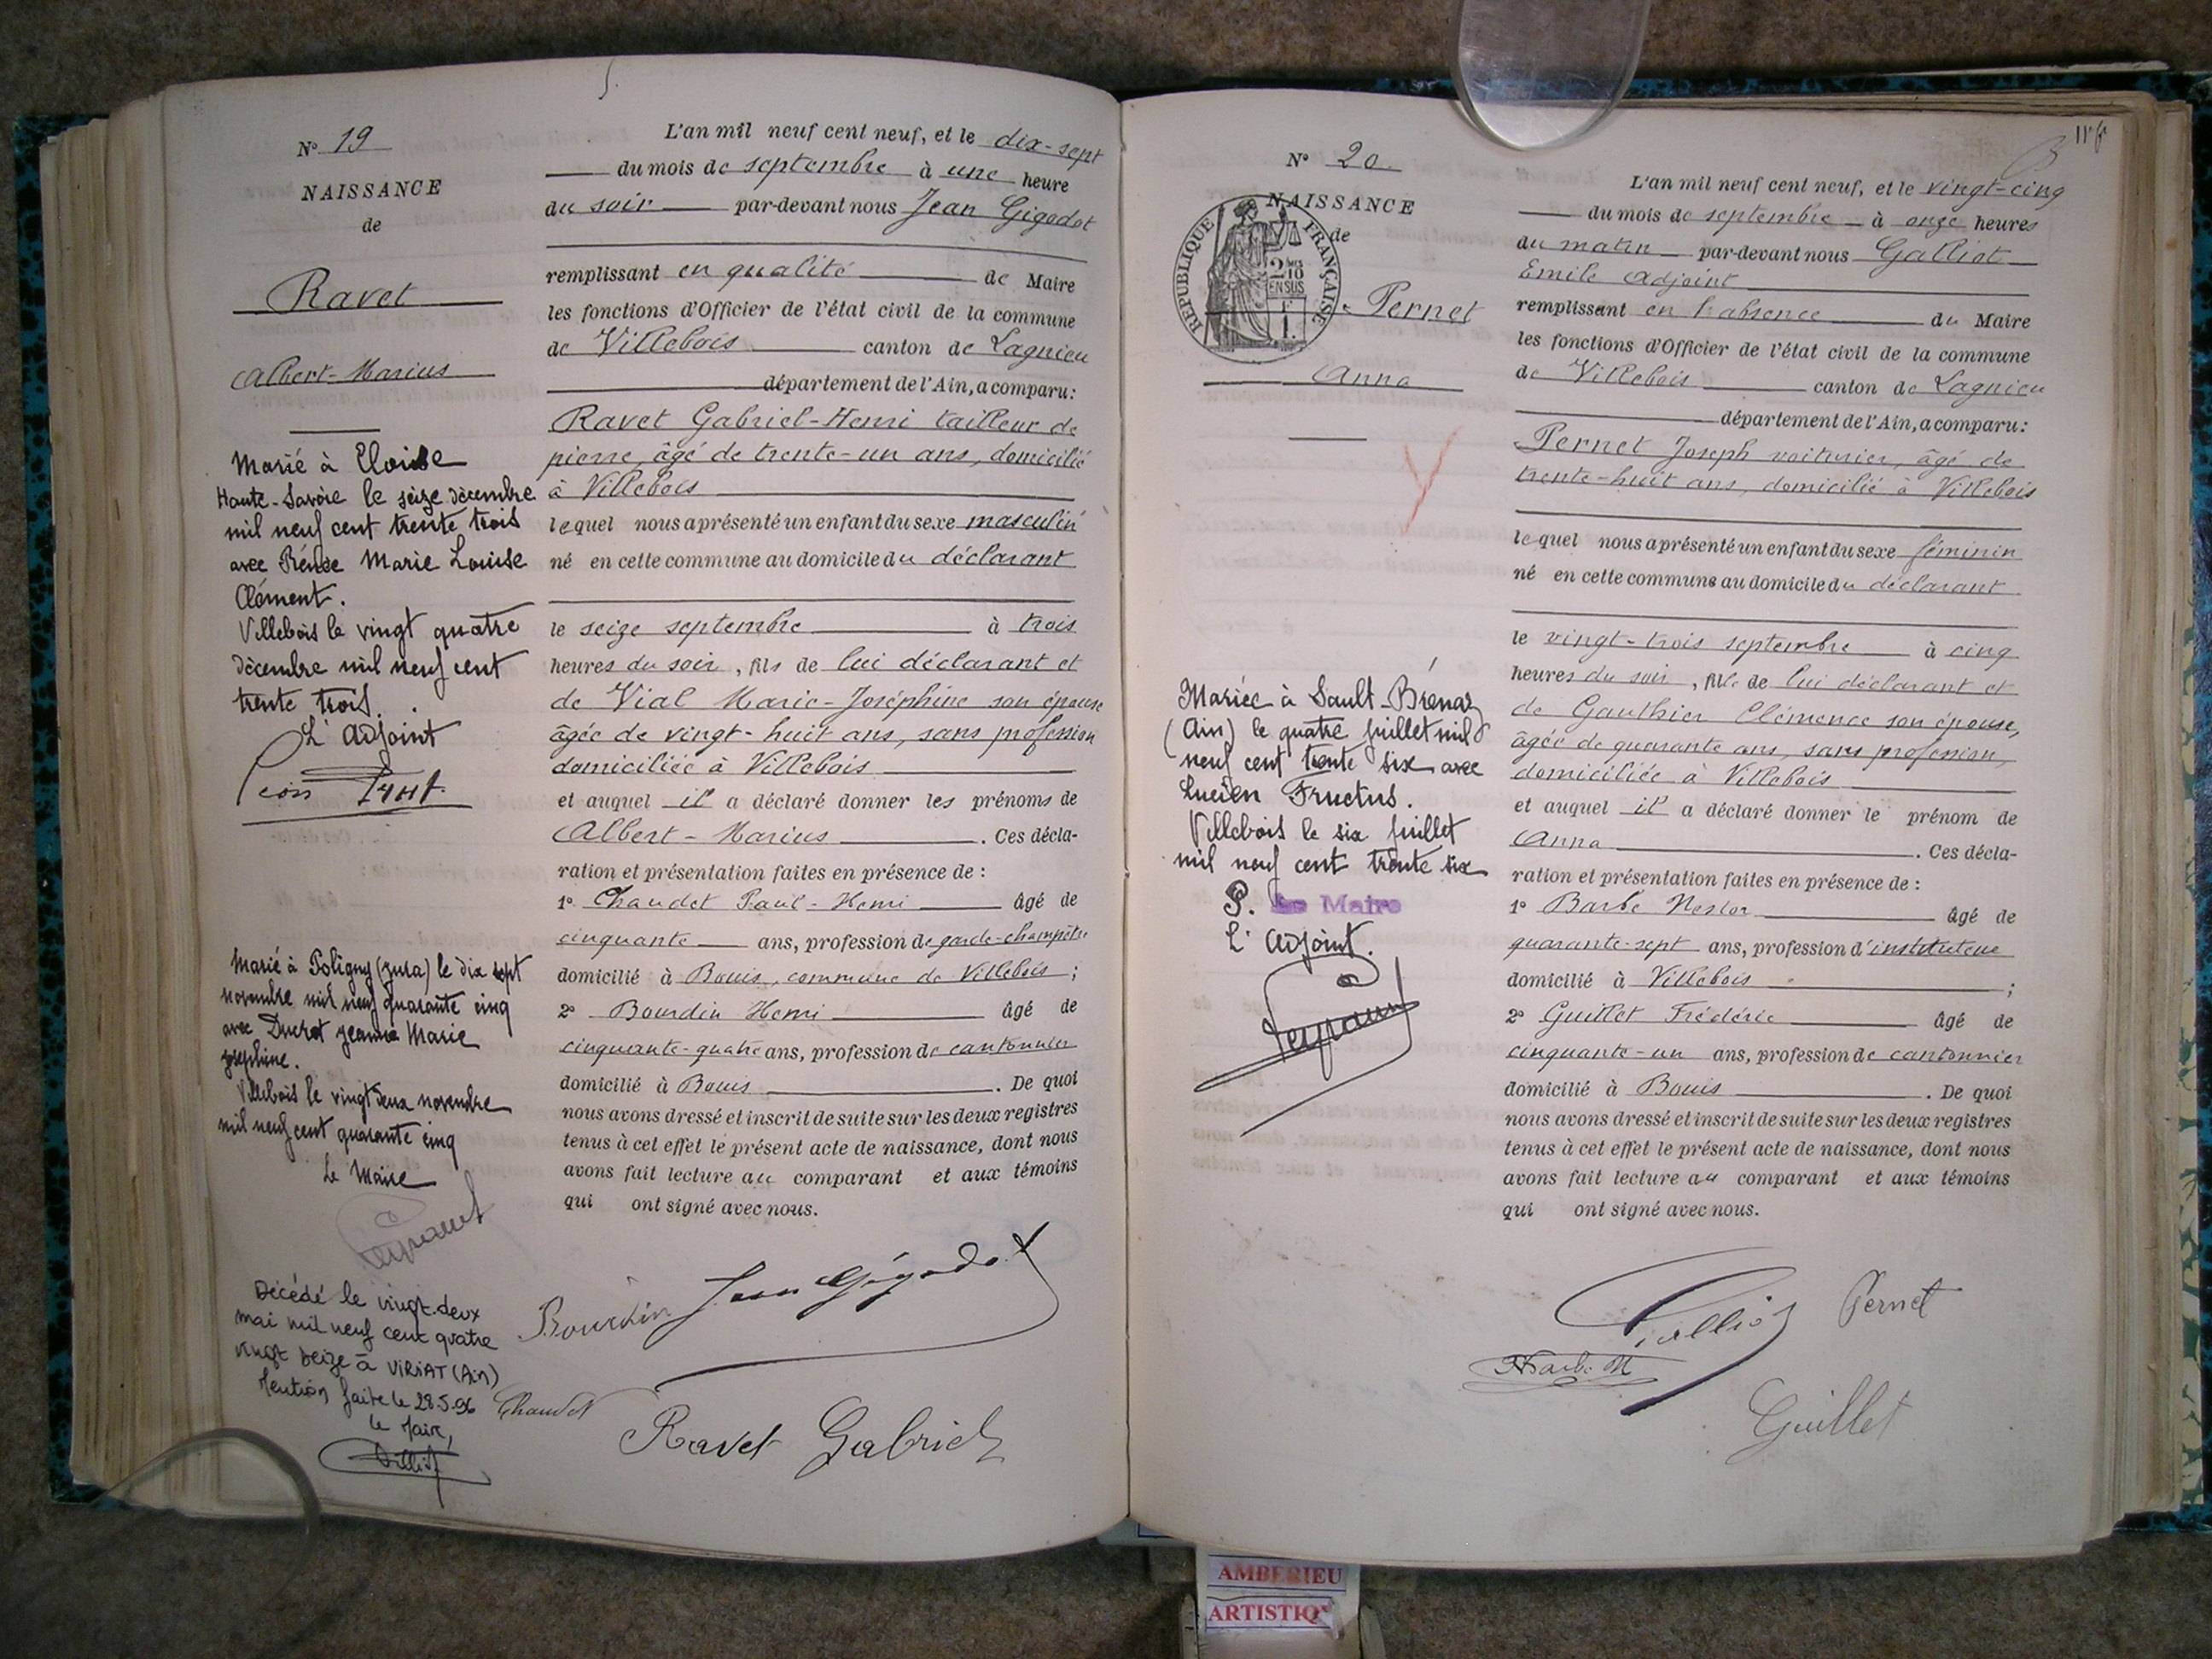 N° 19
NAISSANCE
de
Ravet
Albert-Marius
Marié à Eloise
Haute-Savoie le seize décembre
mil neuf cent trente trois
avec Renée Marie Louise
Clément.
Villebois le vingt quatre
décembre mil neuf cent
trente trois.
L'Adjoint
Léon
Marié à Poligny (Jura) le dix sept
novembre mil neuf quarante cinq
avec Ducrot Jeanne Marie
Josephine.
Villebois le vingt deux novembre
mil neuf cent quarante cinq
Le Maire
Décédé le vingt-deux
mai mil neuf cent quatre
vingt seize à VIRIAT (Ain)
Mention faite le 28.5.96
Le Maire,
L'an mil neuf cent neuf, et le dix-sept
du mois de septembre à une heure
du soir par-devant nous Jean Gigodot
remplissant en qualité de Maire
les fonctions d'Officier de l'état civil de la commune
de Villebois canton de Lagnieu
département de l'Ain, a comparu:
Ravet Gabriel-Henri tailleur de
pierre, âgé de trente-un ans, domicilié
à Villebois
lequel nous a présenté un enfant du sexe masculin
né en cette commune au domicile du déclarant
le seize septembre à trois
heures du soir, fils de lui déclarant et
de Vial Marie-Joséphine son épouse
âgée de vingt-huit ans, sans profession
domiciliée à Villebois
et auquel il a déclaré donner les prénoms de
Albert-Marius. Ces décla-
ration et présentation faites en présence de :
1° Chaudet Paul-Henri âgé de
cinquante ans, profession de garde-champêtre
domicilié à Bouis, commune de Villebois ;
2° Bourdin Henri âgé de
cinquante-quatre ans, profession de cantonnier
domicilié à Bouis. De quoi
nous avons dressé et inscrit de suite sur les deux registres
tenus à cet effet le présent acte de naissance, dont nous
avons fait lecture au comparant et aux témoins
qui ont signé avec nous.
Bourdin Jean Gigodot
Chaudet
Ravet Gabriel
N° 20
NAISSANCE
de
RÉPUBLIQUE FRANÇAISE
2/10 MES
EN SUS
F
1.
Pernet
Anna
Mariée à Sault-Brenaz
(Ain) le quatre juillet mil
neuf cent trente six avec
Lucien Fructus.
Villebois le six juillet
mil neuf cent trente six
P. Le Maire
L'Adjoint.
L'an mil neuf cent neuf, et le vingt-cinq
du mois de septembre à onze heures
du matin par-devant nous Galliot
Emile adjoint
remplissant en l'absence du Maire
les fonctions d'Officier de l'état civil de la commune
de Villebois canton de Lagnieu
département de l'Ain, a comparu:
Pernet Joseph voiturier, âgé de
trente-huit ans, domicilié à Villebois
lequel nous a présenté un enfant du sexe féminin
né en cette commune au domicile du déclarant
le vingt-trois septembre à cinq
heures du soir, fille de lui déclarant et
de Gauthier Clémence son épouse,
âgée de quarante ans, sans profession,
domiciliée à Villebois
et auquel il a déclaré donner le prénom de
Anna. Ces décla-
ration et présentation faites en présence de :
1° Barbe Nestor âgé de
quarante-sept ans, profession d'instituteur
domicilié à Villebois ;
2° Guillet Frédéric âgé de
cinquante-un ans, profession de cantonnier
domicilié à Bouis. De quoi
nous avons dressé et inscrit de suite sur les deux registres
tenus à cet effet le présent acte de naissance, dont nous
avons fait lecture au comparant et aux témoins
qui ont signé avec nous.
Galliot Pernet
Barbe N
Guillet
AMBERIEU
ARTISTIQ